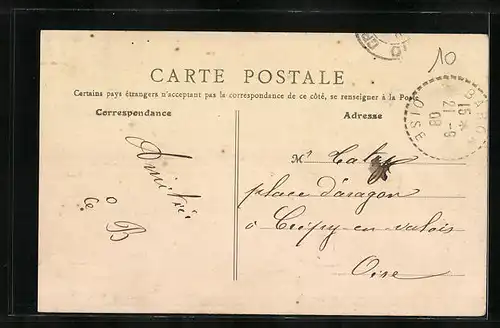 10
CARTE POSTALE
Certains pays étrangers n'acceptant pas la correspondance de ce côté, se renseigner à la Poste
Correspondance
Adresse
15 *
21 - 9
08
OISE
Amitiés
B
Mr
place d'aragon
à Crépy-en-valois
Oise